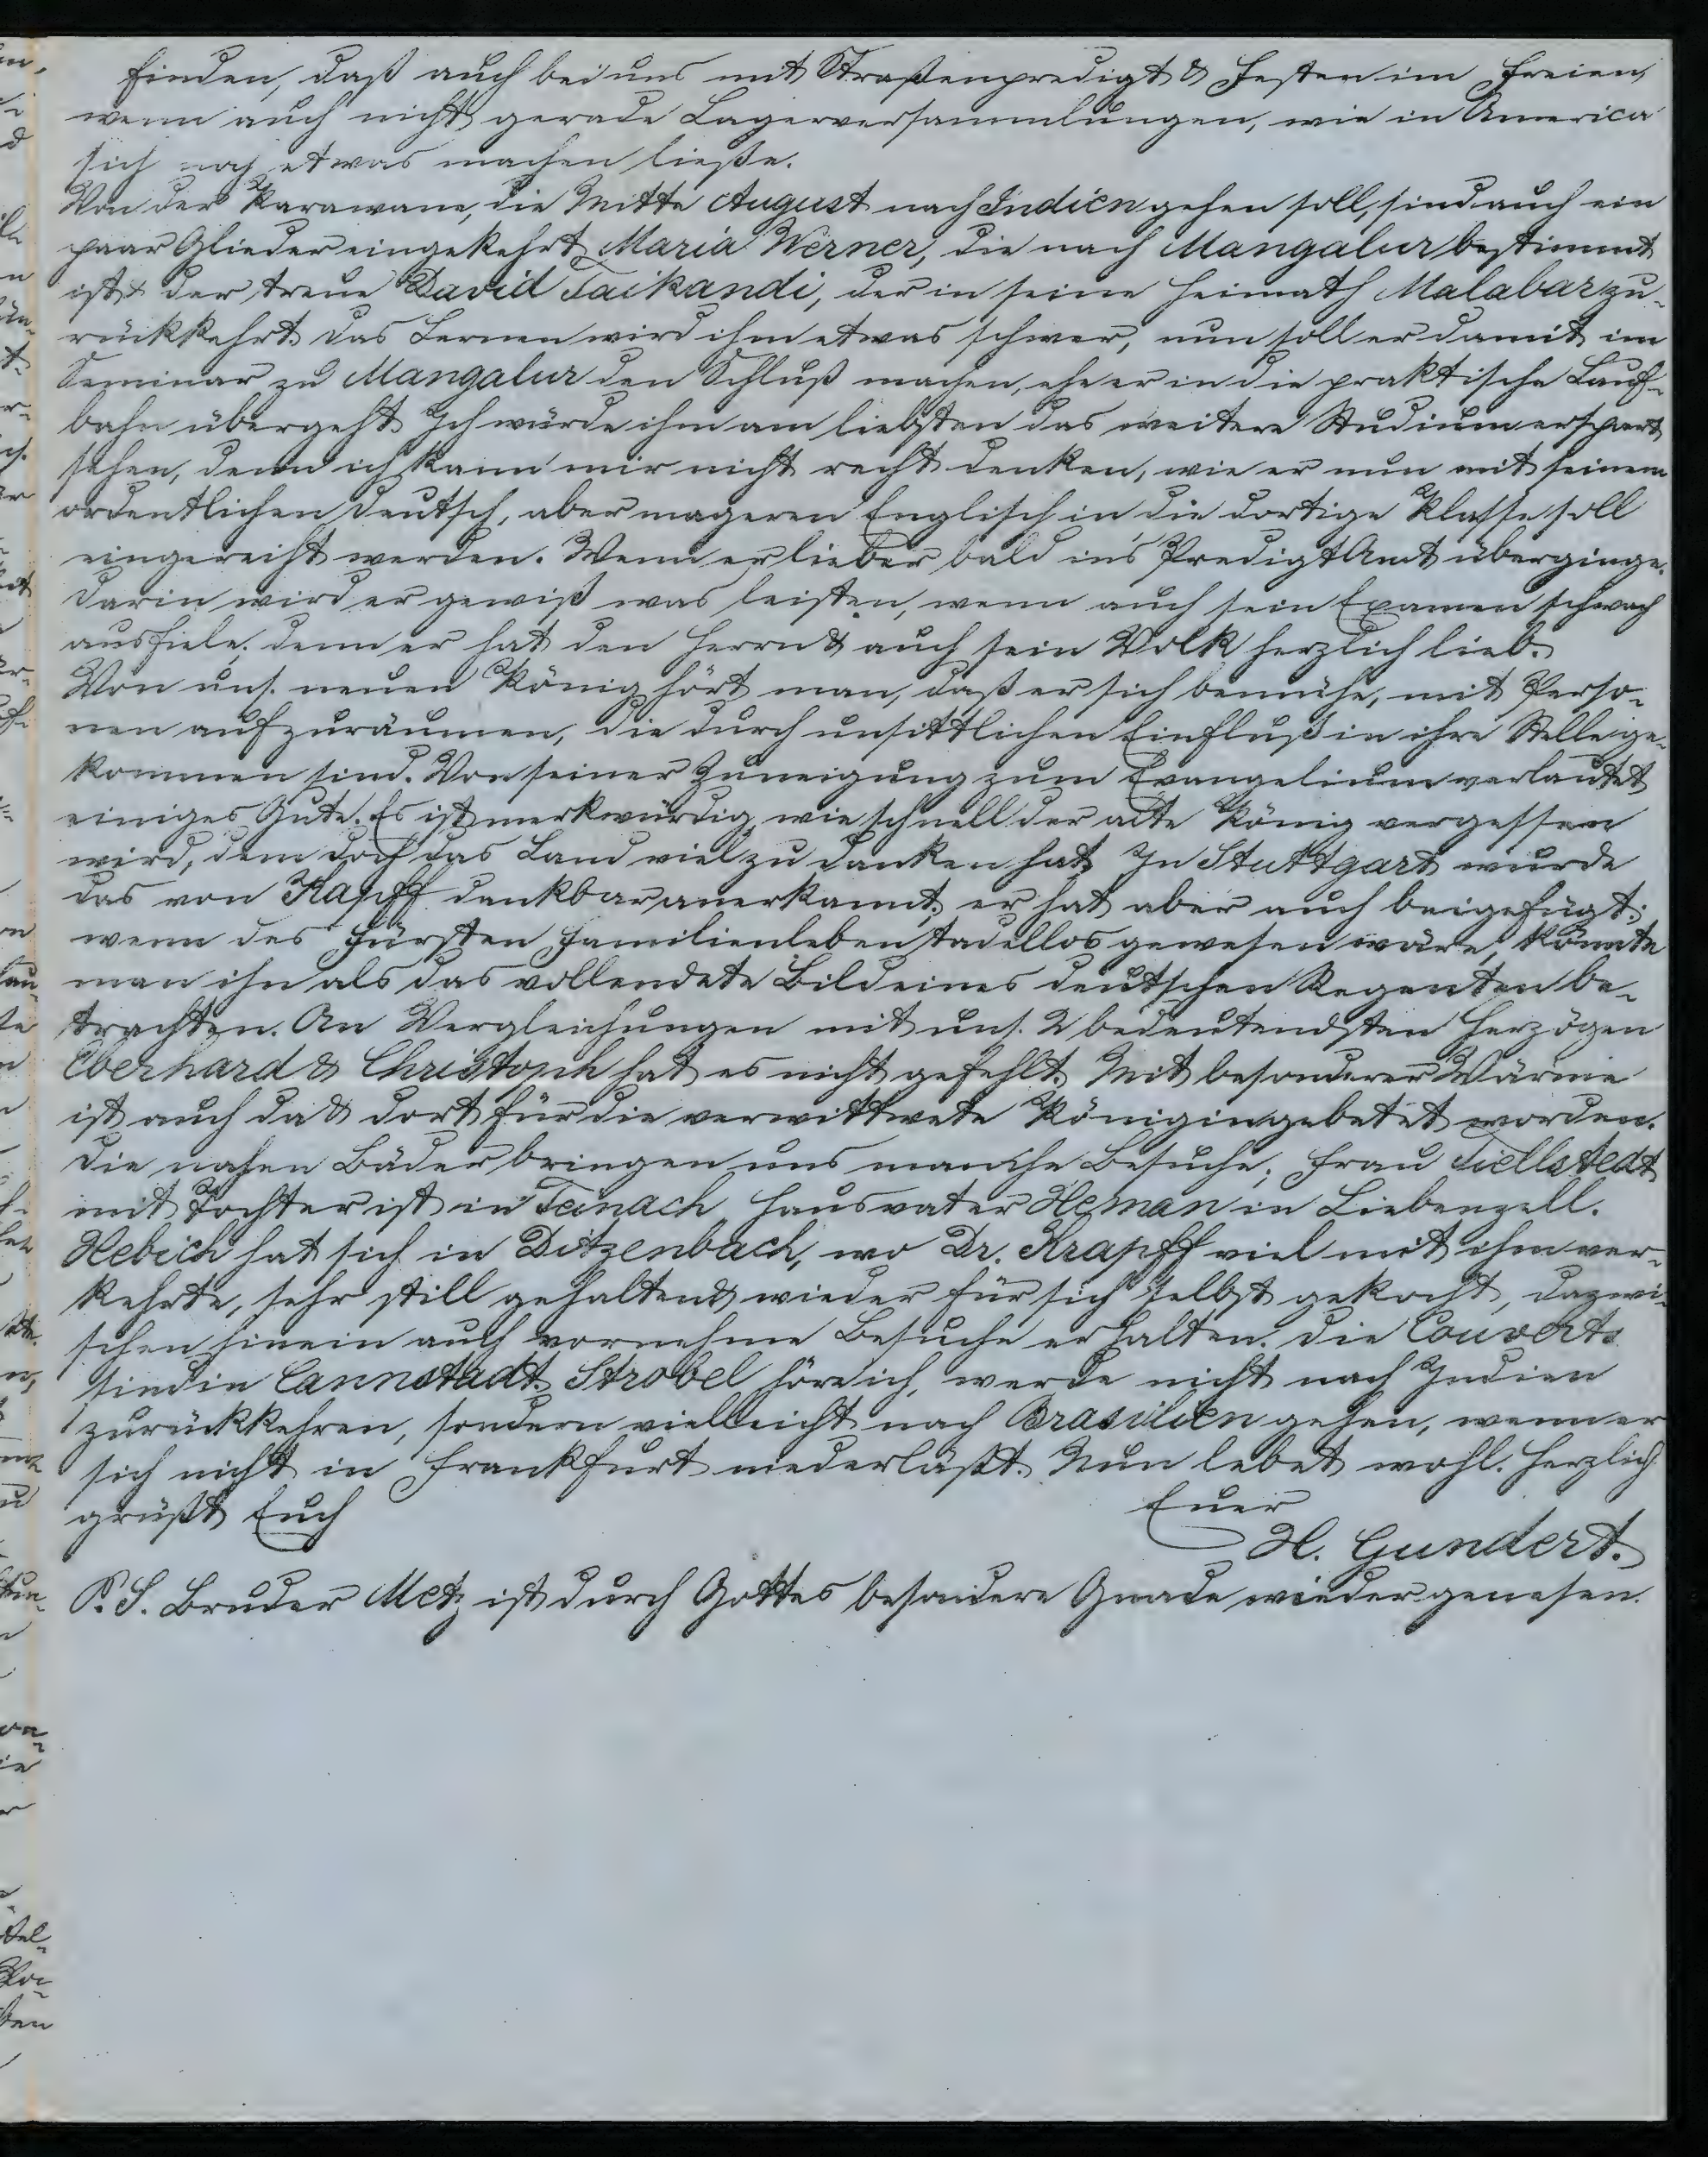 finden, daß auch bei uns mit Straßenpredigt & Festen im Freien,
wenn auch nicht gerade Lagerversammlungen, wie in America
sich noch etwas machen ließe.
Von der Karawane, die Mitte August nach Indien gehen soll, sind auch ein
paar Glieder eingekehrt, Maria Werner, die nach Mangalur bestimmt
ist & der treue David Taikandi, der in seine Heimath Malabar zu-
rückkehrt. Das Lernen wird ihm etwas schwer, nun soll er damit im
Seminar zu Mangalur den Schluß machen, ehe er in die praktische Lauf-
bahn übergeht. Ich würde ihm am liebsten das weitere Studium erspart
sehen, denn ich kann mir nicht recht denken, wie er nun mit seinem
ordentlichen Deutsch, aber mageren Englisch in die dortige Klasse soll
eingereiht werden. Wenn er lieber bald in's Predigt Amt überginge.
Darin wird er gewiß was leisten, wenn auch sein Examen schwach
ausfiele, denn er hat den Herrn & auch sein Volk herzlich lieb.
Von uns. neuen König hört man, daß er sich bemühe, mit Perso-
nen aufzuräumen, die durch unsittlichen Einfluß in ihre Stelle ge-
kommen sind. Von seiner Zuneigung zum Evangelium verlautet
einiges Gute. Es ist merkwürdig, wie schnell der alte König vergessen
wird, dem doch das Land viel zu danken hat. In Stuttgart wurde
das von Kapff dankbar anerkannt; er hat aber auch beigefügt:
wenn des Fürsten Familienleben tadellos gewesen wäre, könnte
man ihn als das vollendete Bild eines deutschen Regenten be-
trachten. An Vergleichungen mit uns. 2 bedeutendsten Herzögen
Eberhard & Christoph hat es nicht gefehlt. Mit besonderer Wärme
ist auch da & dort für die verwittwete Königin gebetet worden.
Die nahen Bäder bringen uns manche Besuche; Frau Fiellstedt
mit Tochter ist in Teinach, Hausvater Heman in Liebenzell.
Hebich hat sich in Ditzenbach, wo Dr. Krapff viel mit ihm ver-
kehrte, sehr still gehalten & wieder für sich selbst gekocht, dazwi-
schen hinein auch vornehme Besuche erhalten. Die Convert
sind in Cannstadt. Strobel höre ich, werde nicht nach Indien
zurückkehren, sondern vielleicht nach Brasilien gehen, wenn er
sich nicht in Frankfurt niederläßt. Nun lebet wohl. Herzlich
grüßt Euch Euer
H. Gundert.
P. S. Bruder Metz ist durch Gottes besondere Gnade wieder genesen.